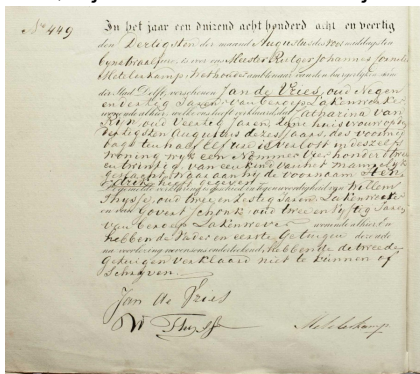 No 449
In het jaar een duizend acht honderd acht en veertig
den Dertigsten der maand Augustus des voormiddags ten
ure, is voor mij Meester Rutger Johannes
Metelerkamp Wethouder ambtenaar van den burgerlijken stand
der Stad Delft, verschenen Jan de Vries, oud Negen
en dertig Jaren van beroep Lakenwerker
Catharina van
oud Veertig Jaren zijne huisvrouw op den
dertigsten Augustus dezes Jaars, des voormid
dags ten half elf ure is verlost in deszelfs
Woning wijk een Nommer vier honderd twee
en twintig, van een kind van het mannelijk
geslacht, waaraan hij de voornaam Hen
drik heeft gegeven
in tegenwoordigheid van Willem
Thijsse, oud twee en Zestig Jaren, Lakenwerker
en van Govert Schonk, oud twee en Vijftig Jaren
van beroep Lakenwever alhier, en
hebbende de Vader en eerste Getuigen deze acte
na voorlezing nevens ons onderteekend, hebbende de tweede
Getuigen verklaard niet te kunnen
Schrijven
Jan de Vries
W Thijsse
Metelerkamp